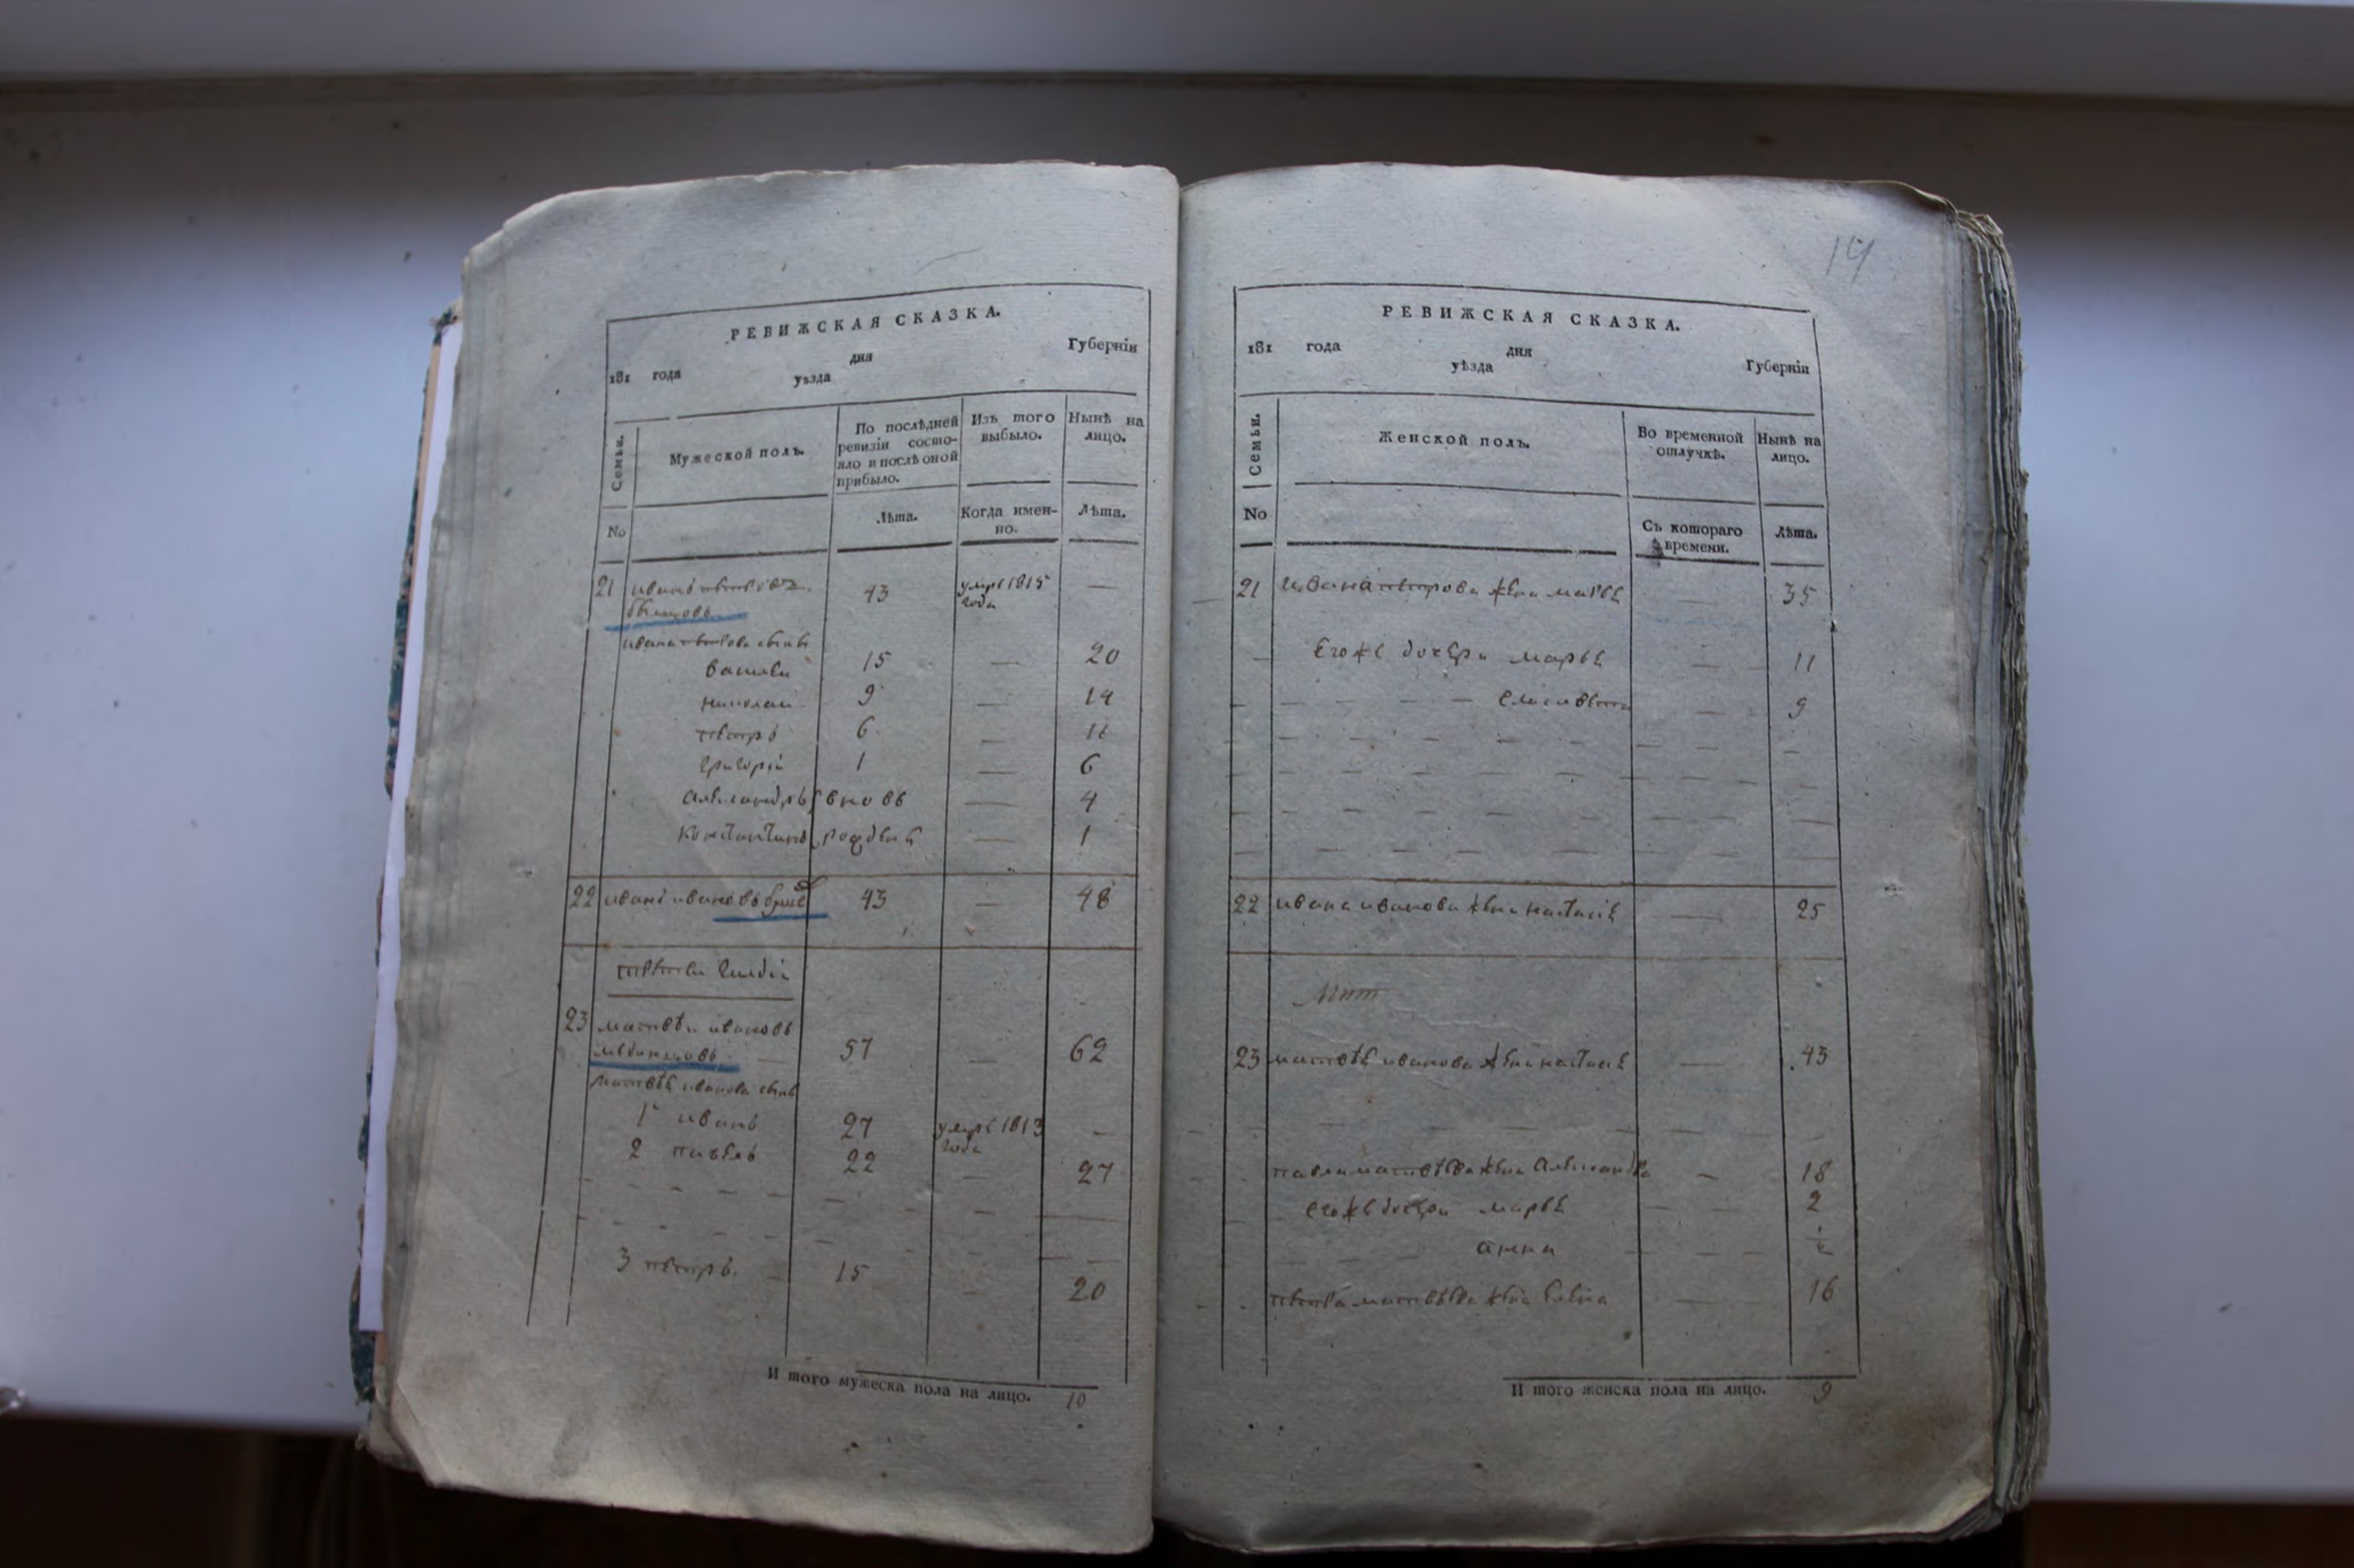 РЕВИЖСКАЯ СКАЗКА.
181 года дня
уѣзда Губернїи
Семьи. Мужеской полъ. По послѣдней ревизїи состояло и послѣ оной прибыло. Изъ того выбыло. Нынѣ на лицо.
No Лѣта. Когда именно. Лѣта.
21 иванъ петровъ 43 умре 1815 года —
ивана петрова сынъ
василеи 15 — 20
николаи 9 — 14
петръ 6 — 11
григорїи 1 — 6
александръ вновь — 4
константинъ рожденъ — 1
22 иванъ ивановъ 43 — 48
третеи гилдїи
23 матвѣи ивановъ
57 — 62
матвѣя иванова сынъ
1 иванъ 27 умре 1813 года —
2 павелъ 22 — 27
3 петръ. 15 — 20
И того мужеска пола на лицо. 10
14
РЕВИЖСКАЯ СКАЗКА.
181 года дня
уѣзда Губернїи
Семьи. Женской полъ. Во временной отлучкѣ. Нынѣ на лицо.
No Съ котораго времени. Лѣта.
21 ивана петрова жена марья — 35
его же дочери марья — 11
елисавета — 9
22 ивана иванова жена настасья — 25
23 матвѣя иванова жена настасья — 43
павла матвѣева жена александра — 18
его же дочери марья — 2
анна
петра матвѣева жена елена — 16
И того женска пола на лицо. 9